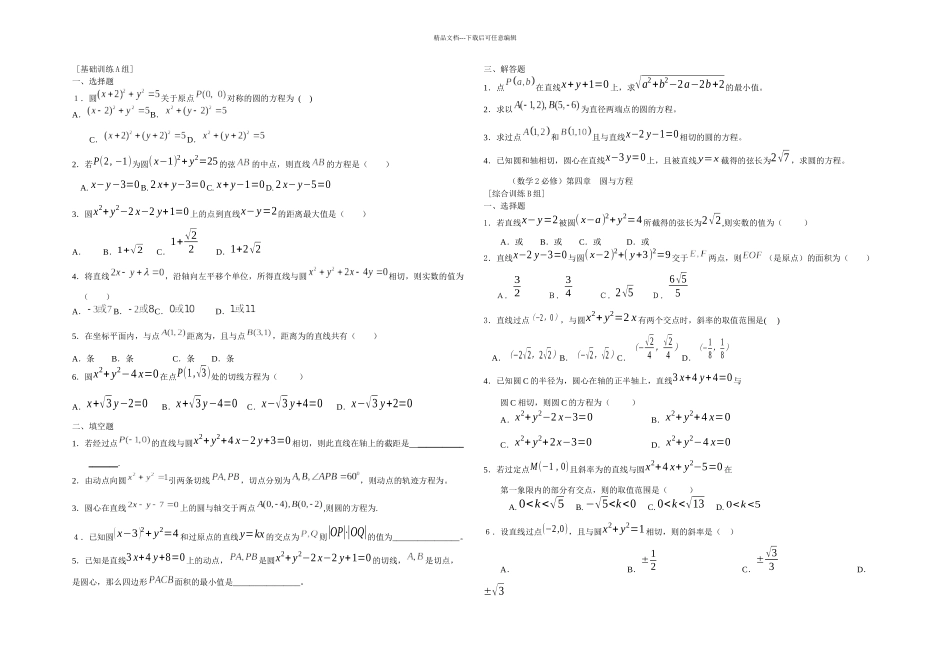 精品文档---下载后可任意编辑
[基础训练A组]
一、选择题
1．圆(x+2)²+y²=5关于原点P(0, 0)对称的圆的方程为 ( )
A．(x−2)²+y²=5 B．x²+(y−2)²=5
C．(x+2)²+(y+2)²=5 D．x²+(y+2)²=5
2．若P(2, −1)为圆(x−1)²+y²=25的弦AB的中点，则直线AB的方程是（ ）
A. x−y−3=0 B. 2x+y−3=0 C. x+y−1=0 D. 2x−y−5=0
3．圆x²+y²−2x−2y+1=0上的点到直线x−y=2的距离最大值是（ ）
A． B．1+√2 C．1+√2/2 D．1+2√2
4．将直线2x−y+λ=0，沿轴向左平移个单位，所得直线与圆x²+y²+2x−4y=0相切，则实数的值为
（ ）
A．−3或7 B．−2或8 C．0或10 D．1或11
5．在坐标平面内，与点A(1,2)距离为，且与点B(3,1)，距离为的直线共有（ ）
A．条 B．条 C．条 D．条
6．圆x²+y²−4x=0在点P(1,√3)处的切线方程为（ ）
A．x+√3y−2=0 B．x+√3y−4=0 C．x−√3y+4=0 D．x−√3y+2=0
二、填空题
1．若经过点P(−1,0)的直线与圆x²+y²+4x−2y+3=0相切，则此直线在轴上的截距是____________
______.
2．由动点向圆x²+y²=1引两条切线PA,PB，切点分别为A,B,∠APB=60⁰，则动点的轨迹方程为。
3．圆心在直线2x−y−7=0上的圆与轴交于两点A(0,−4),B(0,−2),则圆的方程为.
４．已知圆(x−3)²+y²=4和过原点的直线y=kx的交点为P,Q则|OP|·|OQ|的值为________________。
5．已知是直线3x+4y+8=0上的动点，PA,PB是圆x²+y²−2x−2y+1=0的切线，A,B是切点，
是圆心，那么四边形PACB面积的最小值是________________。
三、解答题
1．点P(a,b)在直线x+y+1=0上，求√(a²+b²−2a−2b+2)的最小值。
2．求以A(−1,2),B(5,−6)为直径两端点的圆的方程。
3．求过点A(1,2)和B(1,10)且与直线x−2y−1=0相切的圆的方程。
4．已知圆和轴相切，圆心在直线x−3y=0上，且被直线y=x截得的弦长为2√7，求圆的方程。
（数学2必修）第四章 圆与方程
[综合训练B组]
一、选择题
1．若直线x−y=2被圆(x−a)²+y²=4所截得的弦长为2√2,则实数的值为（ ）
A．或 B．或 C．或 D．或
2．直线x−2y−3=0与圆(x−2)²+(y+3)²=9交于E,F两点，则EOF（是原点）的面积为（ ）
Ａ．3/2 Ｂ．3/4 Ｃ．2√5 Ｄ．6√5/5
3．直线过点(−2,0)，与圆x²+y²=2x有两个交点时，斜率的取值范围是( )
A．(−2√2, 2√2) B．(−√2, √2) C．(−√2/4, √2/4) D．(−1/8, 1/8)
4．已知圆C的半径为，圆心在轴的正半轴上，直线3x+4y+4=0与
圆C相切，则圆C的方程为（ ）
A．x²+y²−2x−3=0 B．x²+y²+4x=0
C．x²+y²+2x−3=0 D．x²+y²−4x=0
5．若过定点M(−1,0)且斜率为的直线与圆x²+4x+y²−5=0在
第一象限内的部分有交点，则的取值范围是（ ）
A. 0<k<√5 B. −√5<k<0 C. 0<k<√13 D. 0<k<5
６．设直线过点(−2,0)，且与圆x²+y²=1相切，则的斜率是（ ）
A． B．±1/2 C．±√3/3 D．
±√3